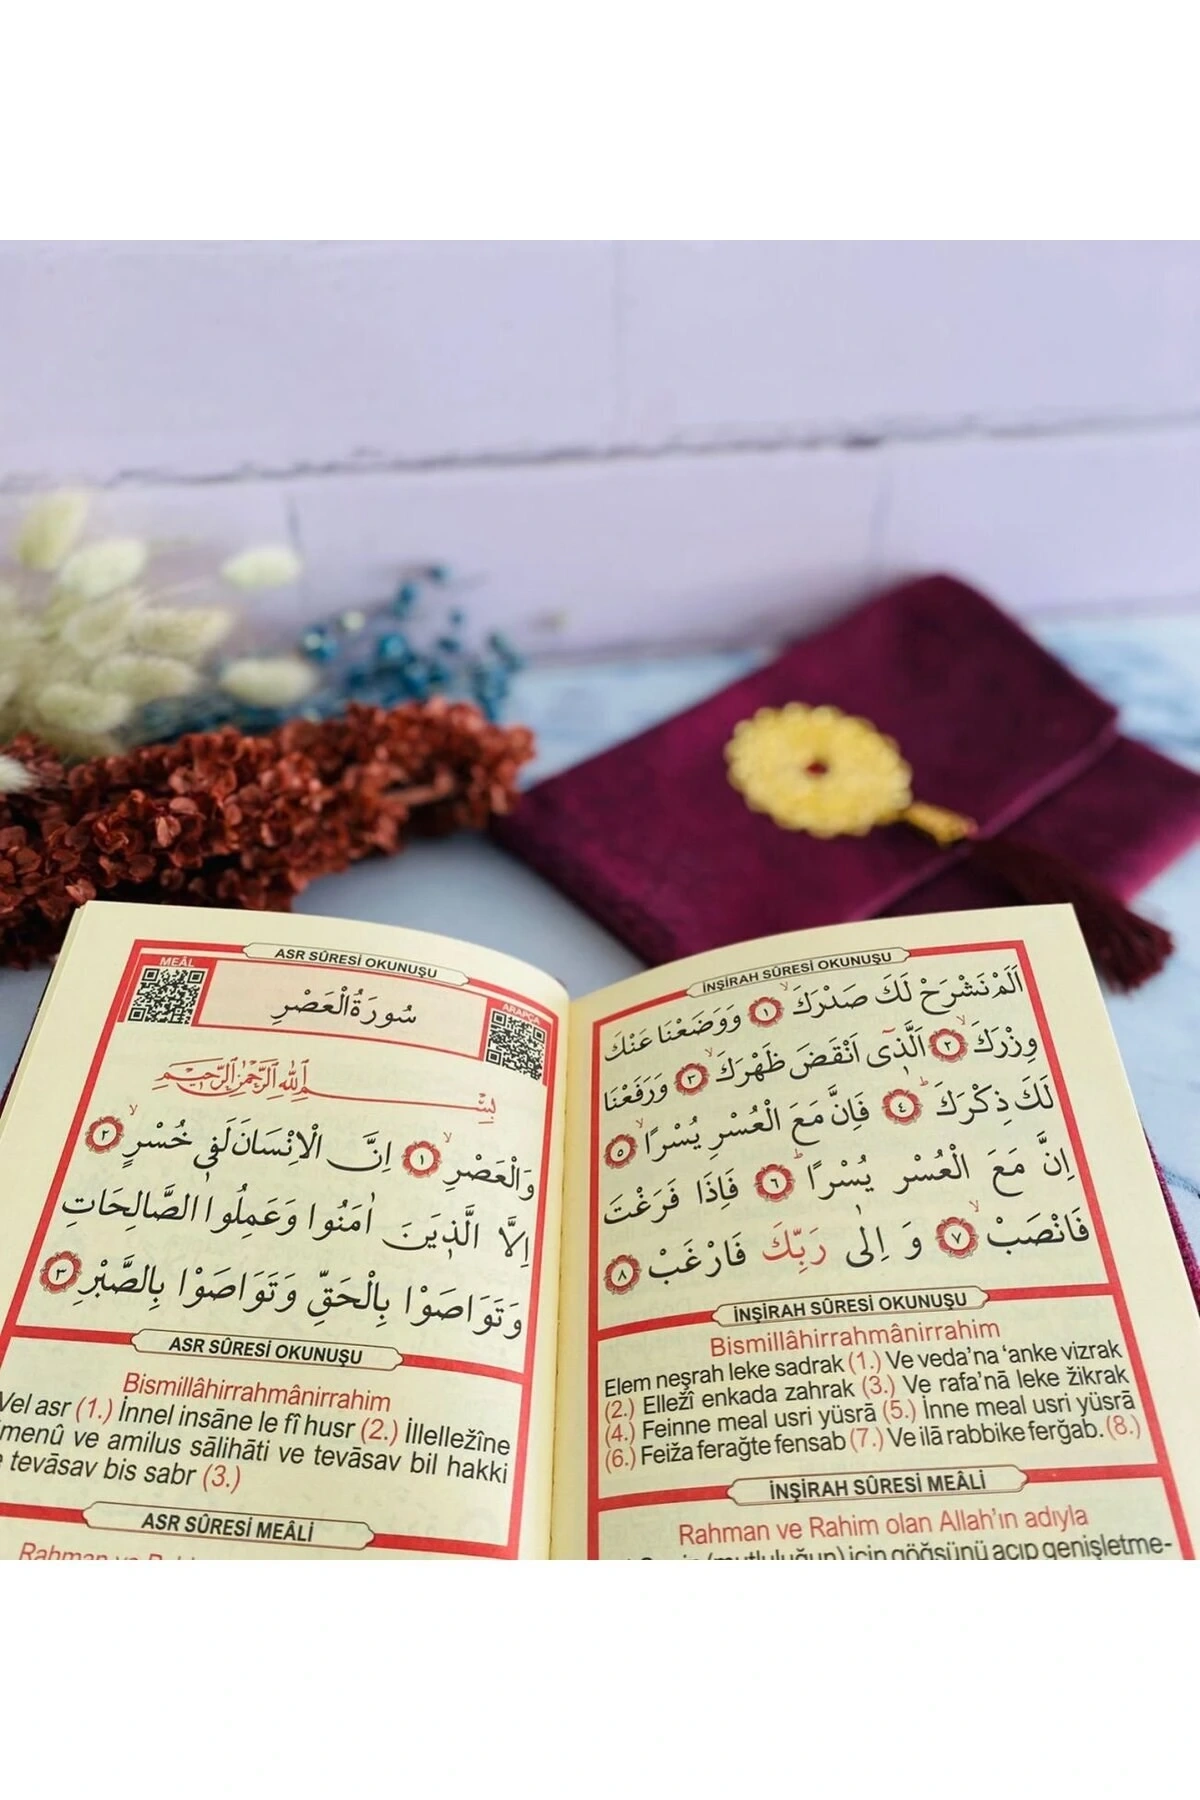 ASR SÛRESİ OKUNUŞU
MEÂL
ARAPÇA
سُورَةُ الْعَصْرِ
بِسْمِ اللهِ الرَّحْمٰنِ الرَّحِيمِ
وَالْعَصْرِۙ ﴿١﴾ اِنَّ الْاِنْسَانَ لَفٖي خُسْرٍۙ ﴿٢﴾
اِلَّا الَّذٖينَ اٰمَنُوا وَعَمِلُوا الصَّالِحَاتِ
وَتَوَاصَوْا بِالْحَقِّ وَتَوَاصَوْا بِالصَّبْرِ ﴿٣﴾
ASR SÛRESİ OKUNUŞU
Bismillâhirrahmânirrahim
Vel asr (1.) İnnel insāne le fî husr (2.) İllelležîne
menû ve amilus sālihāti ve tevāsav bil hakki
tevāsav bis sabr (3.)
ASR SÛRESİ MEÂLİ
Rahman
İNŞİRAH SÛRESİ OKUNUŞU
اَلَمْ نَشْرَحْ لَكَ صَدْرَكَۙ ﴿١﴾ وَوَضَعْنَا عَنْكَ
وِزْرَكَۙ ﴿٢﴾ اَلَّذٖٓى اَنْقَضَ ظَهْرَكَۙ ﴿٣﴾ وَرَفَعْنَا
لَكَ ذِكْرَكَۜ ﴿٤﴾ فَاِنَّ مَعَ الْعُسْرِ يُسْرًاۙ ﴿٥﴾
اِنَّ مَعَ الْعُسْرِ يُسْرًاۜ ﴿٦﴾ فَاِذَا فَرَغْتَ
فَانْصَبْۙ ﴿٧﴾ وَ اِلٰى رَبِّكَ فَارْغَبْ ﴿٨﴾
İNŞİRAH SÛRESİ OKUNUŞU
Bismillâhirrahmânirrahim
Elem neşrah leke sadrak (1.) Ve veda'na 'anke vizrak
(2.) Elležî enkada zahrak (3.) Ve rafa'nā leke žikrak
(4.) Feinne meal usri yüsrā (5.) İnne meal usri yüsrā
(6.) Feiža ferağte fensab (7.) Ve ilā rabbike ferğab. (8.)
İNŞİRAH SÛRESİ MEÂLİ
Rahman ve Rahim olan Allah'ın adıyla
(mutluluğun) için göğsünü açıp genişletme-